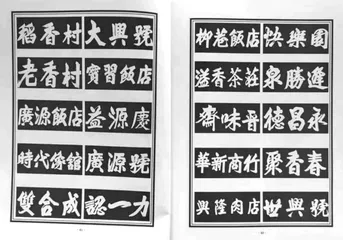 稻香村 大興號
老香村 飯店
廣源飯店 益源慶
時代像舘 廣源號
雙合成 認一力
柳巷飯店 快樂園
溢香茶莊 泉勝
齋味晋 德昌永
華新商行 聚香春
興隆肉店 世興號